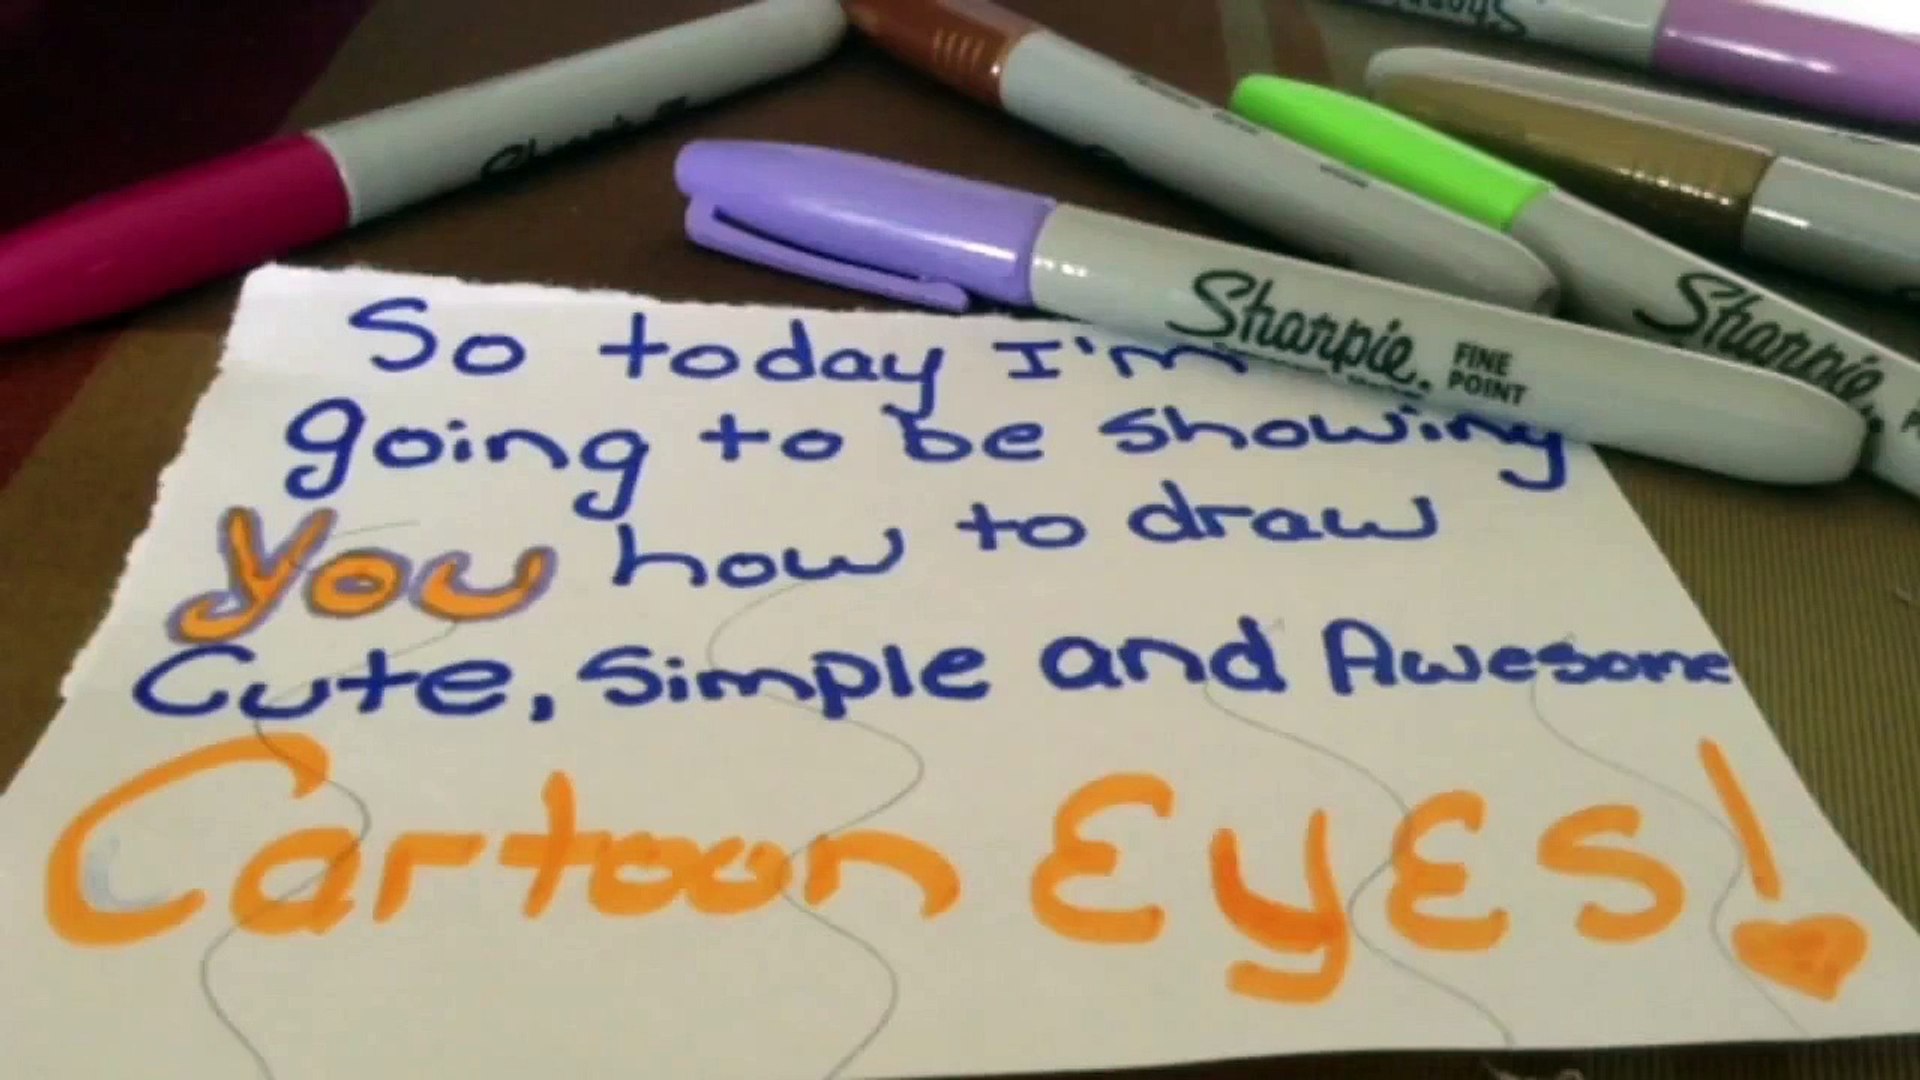 Sharpie
So today I'm
going to be showing
you how to draw
Cute, Simple and Awesome
Cartoon EyES!
Sharpie.
FINE
POINT
Sharpie